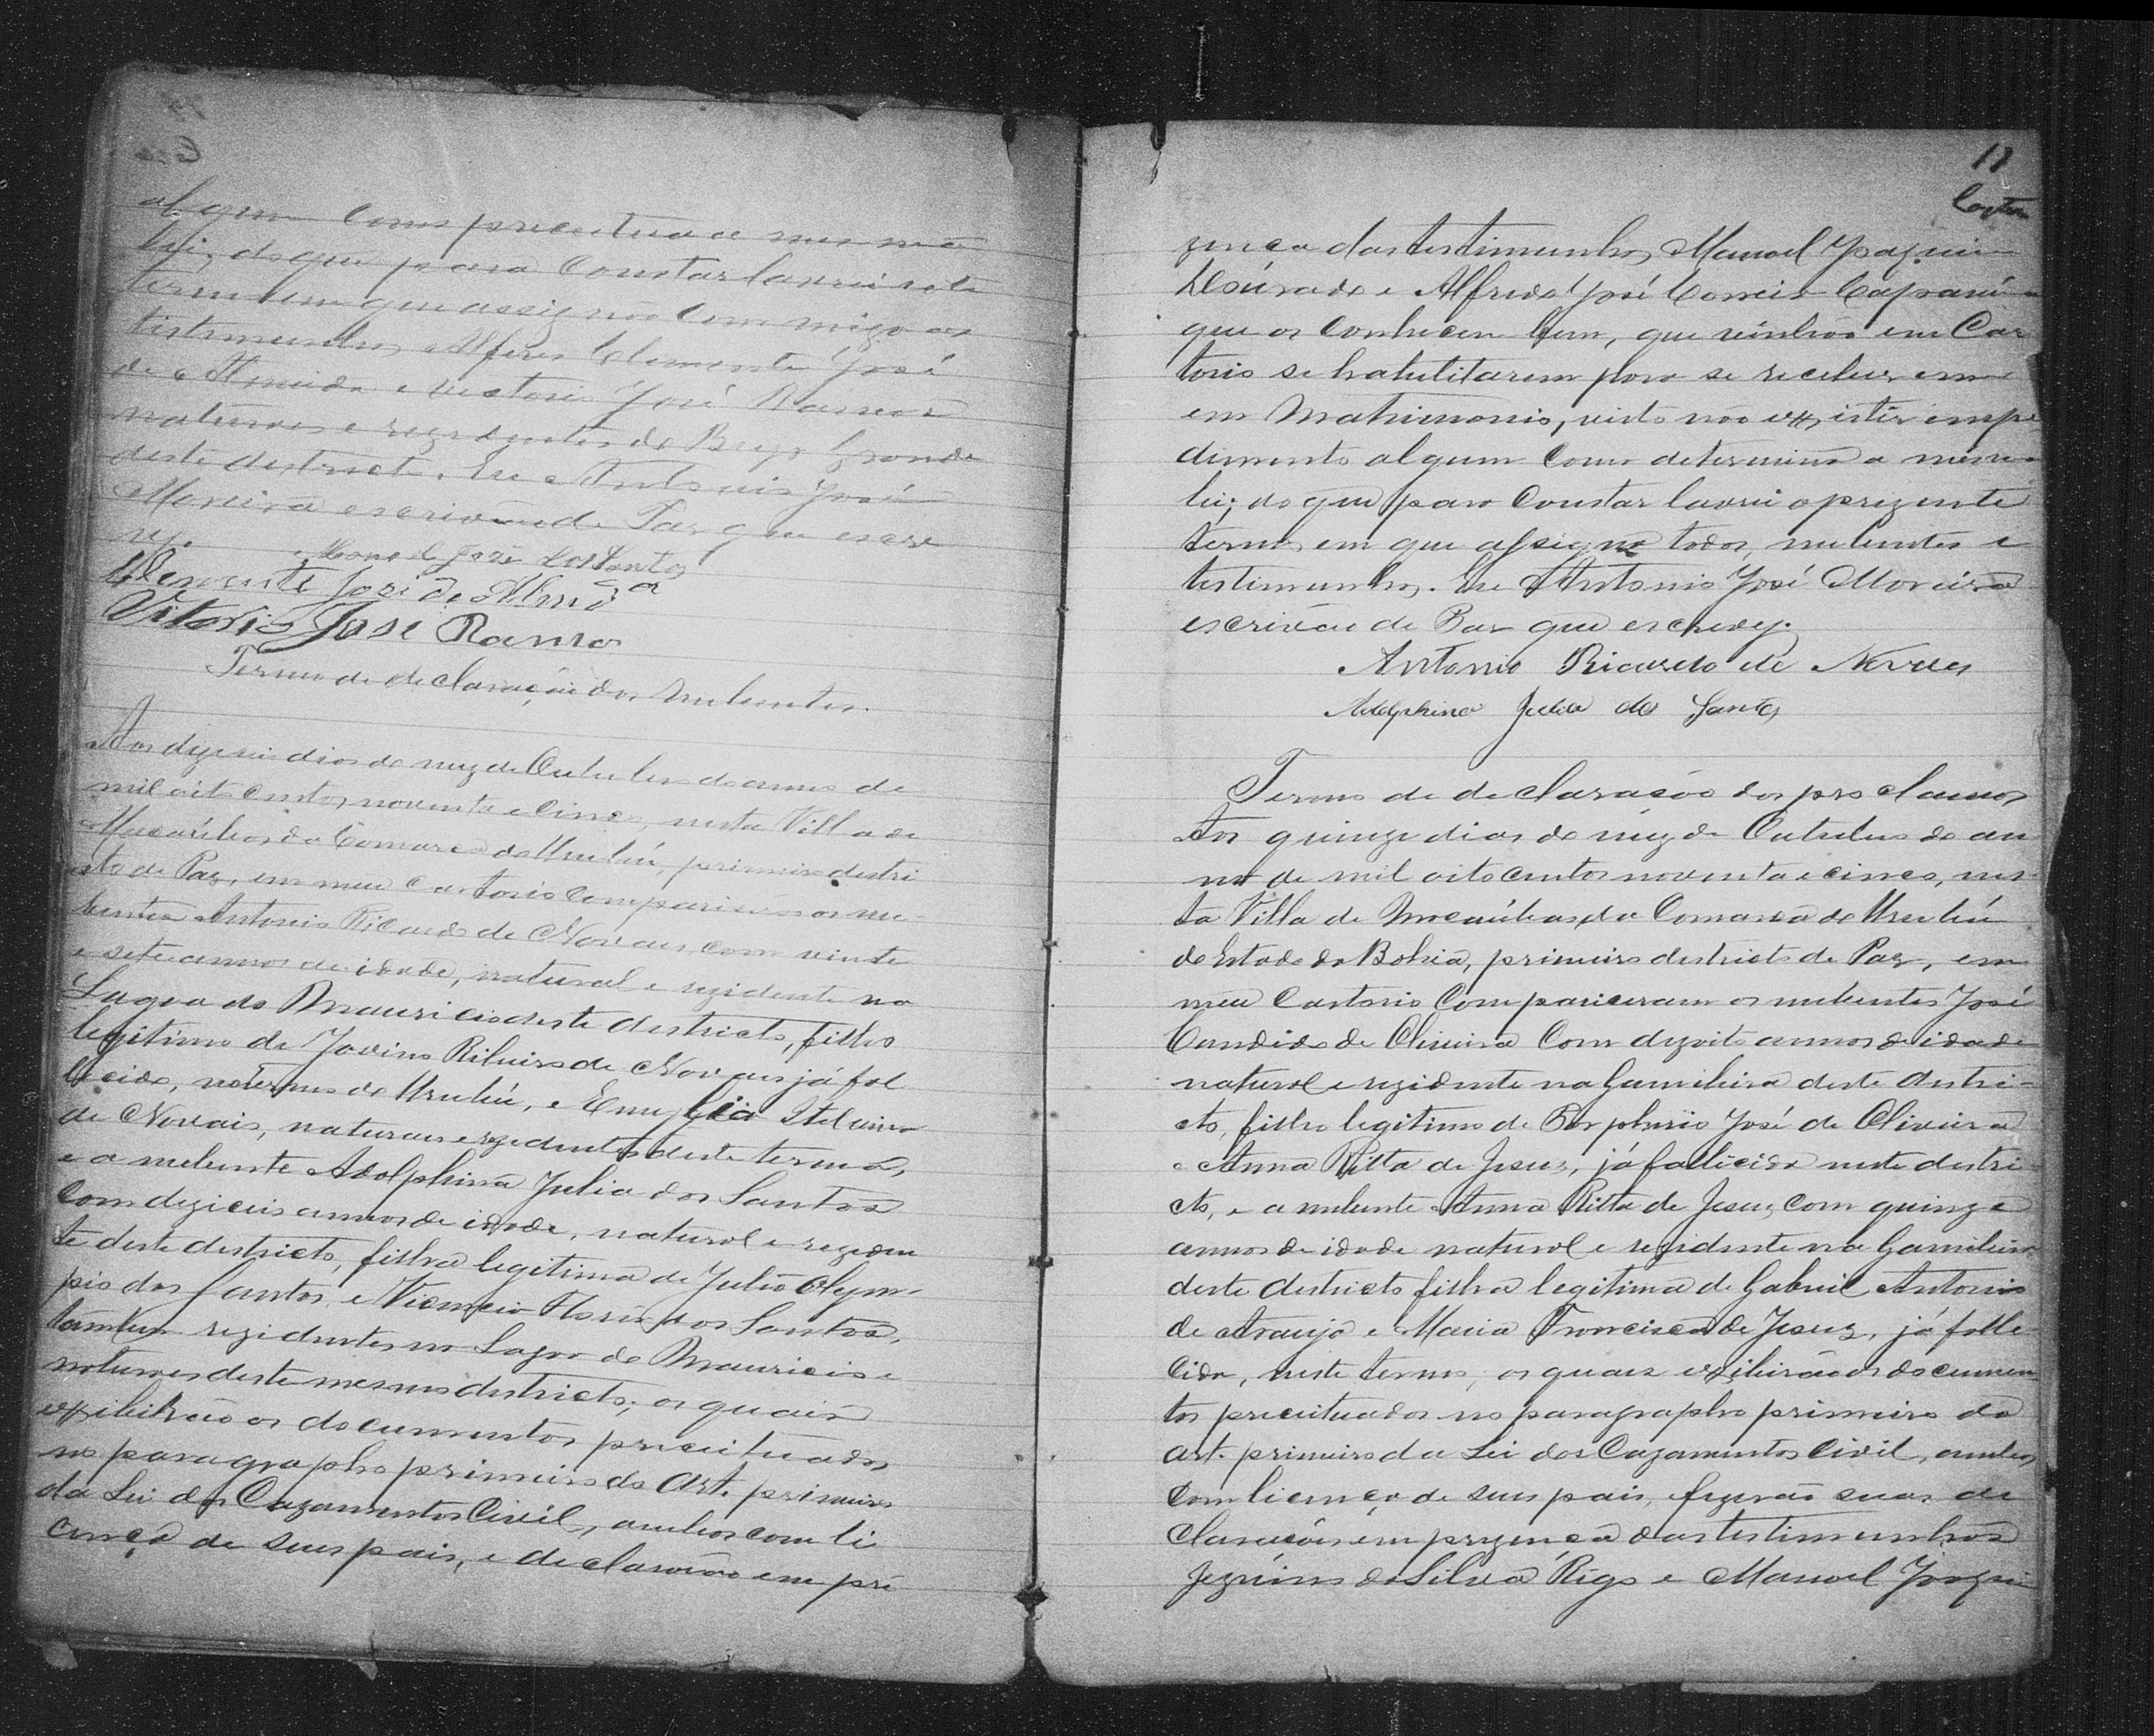 algum como preceitua a mesma
lei; do que para constar lavrei este
termo em que assignão com migo as
testimunhas Alferes Clemente José
de Almeida e Victorio José Ramos
naturaes e rezidentes do Brejo Grande
deste destricto. Eu Antonio José
Moreira escrivão de Paz que escre
vy. Manoel José dos Santos
Clemente José de Almda
Vitorio José Ramos
Termo de declaração dos nubentes.
Aos dezeseis dias do mez de Outubro do anno de
mil oito centos noventa e cinco, nesta Villa de
Macaúbas da Comarca do Urubú, primeiro destri
cto de Paz, em meu Cartorio comparicerão os nu-
bentes Antonio Ricardo de Novaes, com vinte
e sete annos de idade, natural e rezidente na
Lagoa do Mauricio deste destricto, filho
legitimo de Jovino Ribeiro de Novaes já fal
lecido, no termo do Urubú, e Emygdia
de Novais, naturaes e rezedentes deste termo,
e a nubente Adolphina Julia dos Santos
com dezeceis annos de idade, natural e rezeden
te deste destricto, filha legitima de Julio Olym-
pio dos Santos e Maria dos Santos,
tambem rezidentes na Lagoa do Mauricio e
naturaes deste mesmo destricto; os quais
exhibirão os documentos preceituados
no paragrapho primeiro do Art. primeiro
da Lei dos Cazamentos Civil, ambos com li
cença de seus pais, e declararão em pre
11
zença das testimunhas Manoel Joaquim
Dourado e Alfredo José Correia
que os conhecem bem, que vinhão em Car
torio se habelitarem para se receberem
em Matrimonio, visto não exsistir empe
dimento algum como determina a mesma
lei; do que para constar lavrei o prezente
termo em que assigna todos, nubentes e
testimunhas. Eu Antonio José Moreira
escrivão de Paz que escrevy.
Antonio Ricardo de Novaes
Adolphina Julia dos Santos
Termo de declaração dos proclamos
Aos quinze dias do mez de Outubro do an
no de mil oito centos noventa e cinco, nes-
ta Villa de Macaúbas, da Comarca do Urubú
do Estado da Bahia, primeiro destricto de Paz, em
meu Cartorio compariceram os nubentes José
Candido de Oliveira com dezoito annos de idade
natural e rezidente na Gamileira deste destri-
cto, filho legitimo de Porphirio José de Oliveira
e Anna Ritta de Jesus, já fallicida neste destri
cto, e a nubente Anna Ritta de Jesus, com quinze
annos de idade natural e rezidente na Gamileira
deste destricto filha legitima de Gabriel Antonio
de Araujo e Maria Francisca de Jesus, já falle
cida, neste termo; os quaes exhibirão os documen
tos preceituados no paragrapho primeiro do
art. primeiro da Lei dos Cazamentos Civil, ambos
com licença de seus pais, fizerão suas de
claraçois em prezença das testimunhas
da Silva Rego e Manoel Joaqui